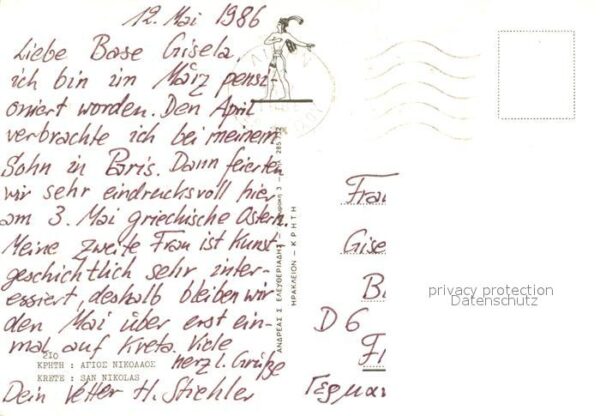 12. Mai 1986
Liebe Base Gisela,
ich bin im März pensi-
oniert worden. Den April
verbrachte ich bei meinem
Sohn in Paris. Dann feierten
wir sehr eindrucksvoll hier
am 3. Mai griechische Ostern.
Meine zweite Frau ist Kunst-
geschichtlich sehr inter-
essiert, deshalb bleiben wir
den Mai über erst ein-
mal auf Kreta. Viele
herzl. Grüße
Dein Vetter H. Stiehler
210
ΚΡΗΤΗ : ΑΓΙΟΣ ΝΙΚΟΛΑΟΣ
KRETE : SAN NIKOLAS
ΑΝΔΡΕΑΣ Σ. ΕΛΕΥΘΕΡΙΑΔΗΣ
ΗΡΑΚΛΕΙΟΝ - ΚΡΗΤΗ
Frau
Gise
B
D 6
F
Γερμαν
privacy protection
Datenschutz